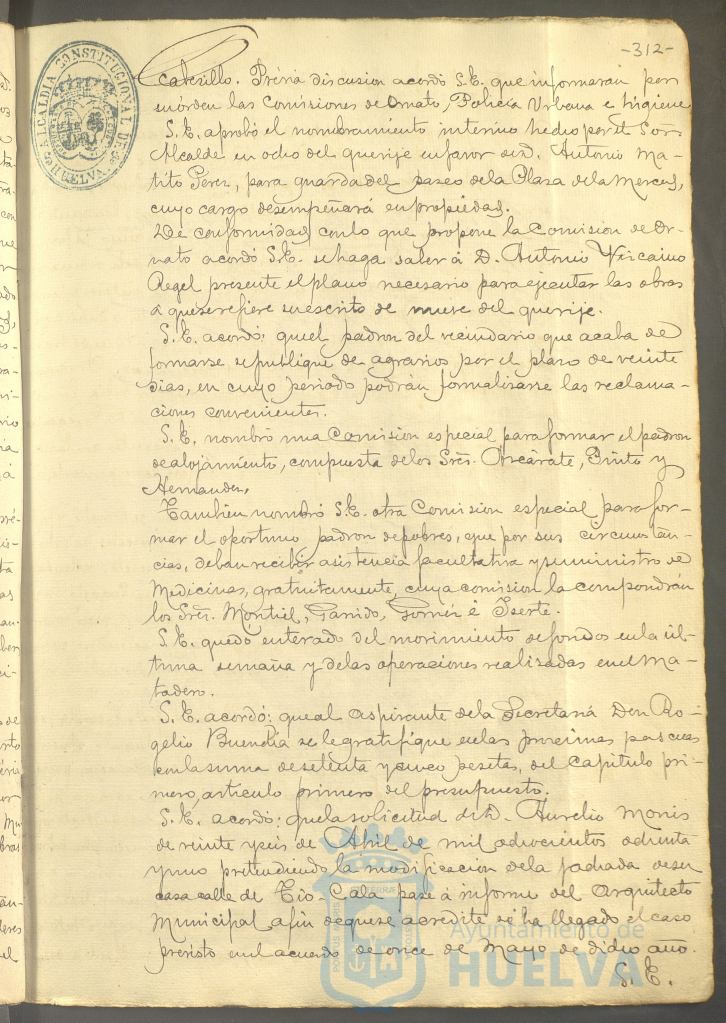 -312-
ALCALDIA CONSTITUCIONAL DE HUELVA
Caberillo. Prévia discusion acordó S.E. que informaran por
su órden las Comisiones de Ornato, Policia Urbana e higiene
S.E. aprobó el nombramiento interino hecho por el Señor
Alcalde en ocho del que rije en favor de D. Antonio Ma-
tito Perez, para guarda del paseo de la Plaza de la Merced,
cuyo cargo desempeñará en propiedad.
De conformidad con lo que propone la Comision de Or-
nato acordó S.E. se haga saber á D. Antonio Vizcaino
Regel presente el plano necesario para ejecutar las obras
á que se refiere su escrito de nueve del que rije.
S.E. acordó: que el padron del vecindario que acaba de
formarse se publique de agravios por el plazo de veinte
dias, en cuyo periodo podrán formalizarse las reclama-
ciones convenientes.
S.E. nombró una Comisión especial para formar el padron
de alojamiento, compuesta de los Sres. Azcárate, Pinto y
Hernandez,
Tambien nombró S.E. otra Comision especial para for-
mar el oportuno padron de pobres, que por sus circunstan-
cias, deban recibir asistencia facultativa y suministro de
Medicinas, gratuitamente, cuya comision la compondrán
los Sres. Montiel, Garrido, é Iserte.
S.E. quedó enterado del movimiento de fondos en la úl-
tima semana y de las operaciones realizadas en el Ma-
tadero.
S.E. acordó: que al aspirante de la Secretaria Don Ro-
gelio Buendia se le gratifique en las procsimas pascuas
con la suma de setenta y cinco pesetas, del capitulo pri-
mero, artículo primero del presupuesto.
S.E. acordó: que la solicitud de D. Aurelio Monis
de veinte y seis de Abril de mil ochocientos ochenta
y uno pretendiendo la modificacion de la fachada de su
casa calle de Tio-Cala pase á informe del Arquitecto
Municipal a fin de que se acredite si ha llegado el caso
previsto en el acuerdo de once de Mayo de dicho año.
S.E.
Ayuntamiento de
HUELVA